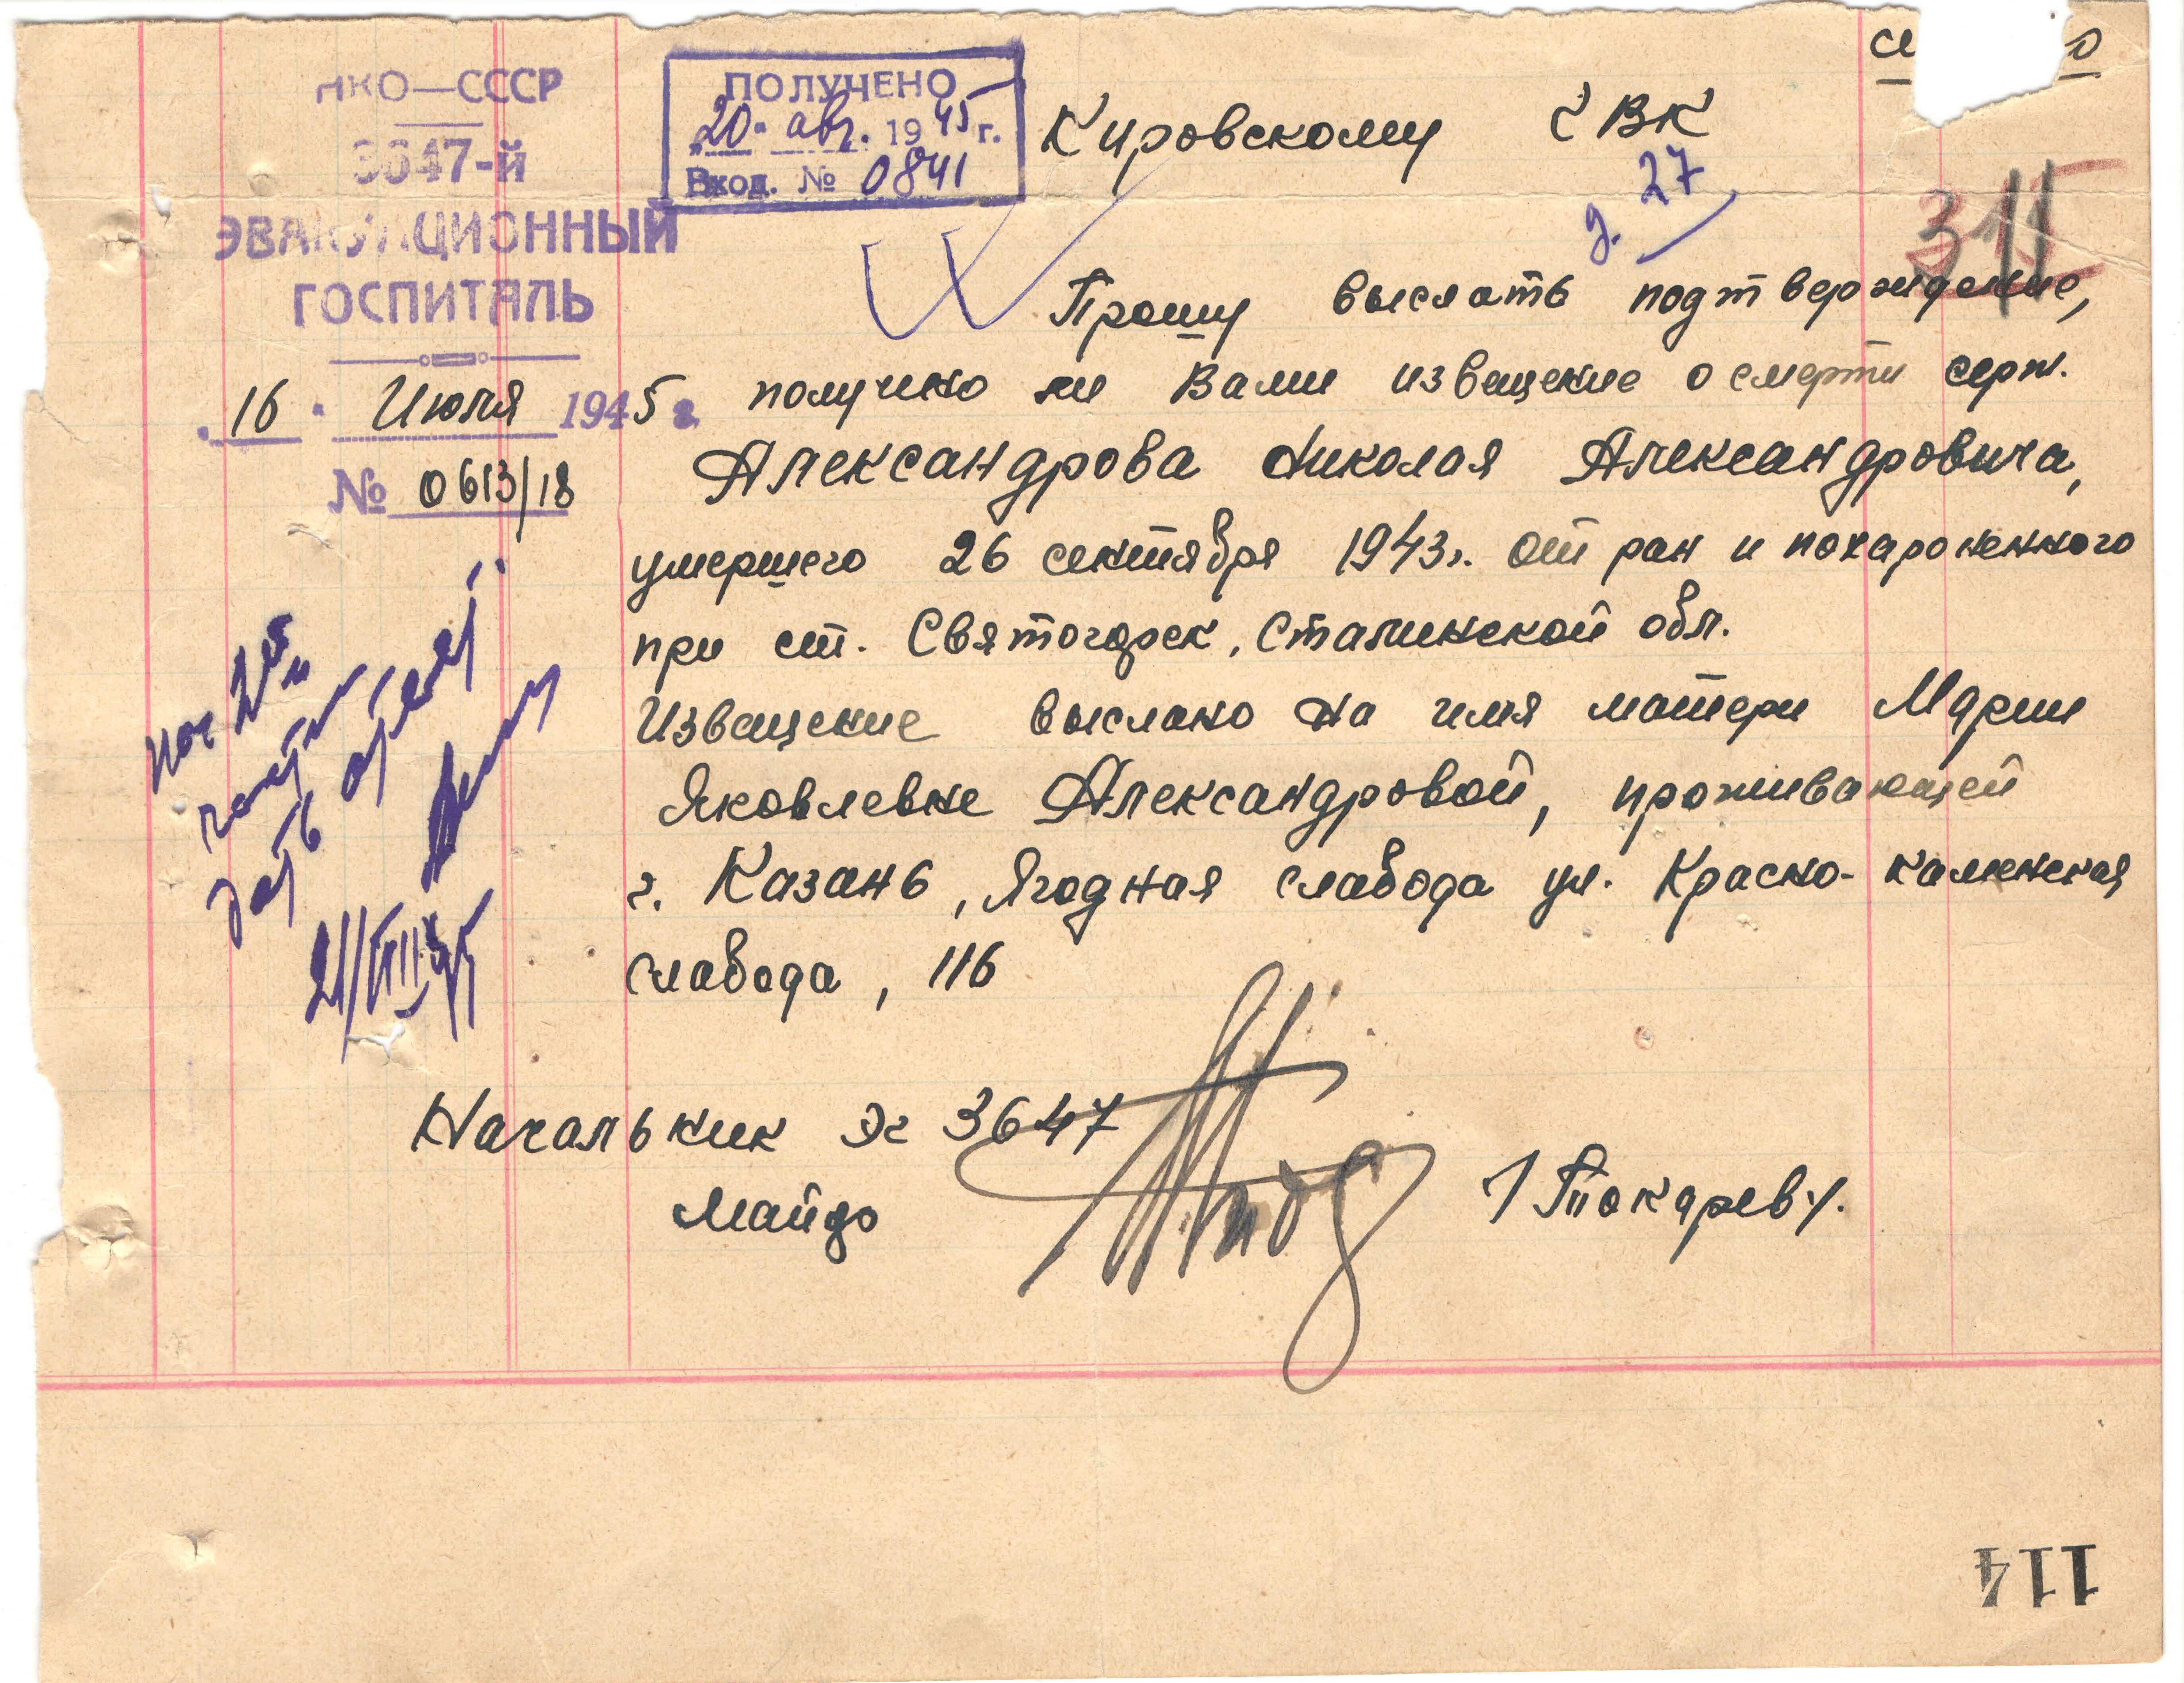 НКО—СССР
3647-й
ЭВАКУАЦИОННЫЙ
ГОСПИТАЛЬ
"16" Июля 1945 г.
№ 0613/18
ПОЛУЧЕНО
"20" авг. 1945 г.
Вход. № 0841
Кировскому РВК
д. 27
315
Прошу выслать подтверждение,
получено ли Вами извещение о смерти серж.
Александрова Николая Александровича,
умершего 26 сентября 1943г. от ран и похороненного
при ст. Святогорск, Сталинской обл.
Извещение выслано на имя матери Марии
Яковлевне Александровой, проживающей
г. Казань, Ягодная слабода ул. Красно-каменская
слабода, 116
дать ответ
21/VIII 45
Начальник эг 3647
Майор
/Токарев/.
114